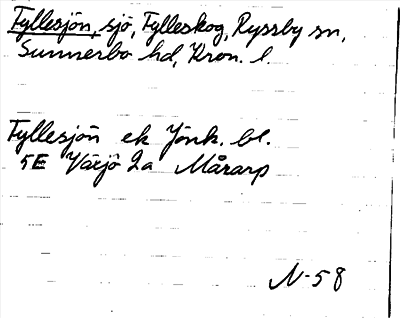 Fyllesjön, sjö, Fylleskog, Ryssby sn,
Sunnerbo hd, Kron. l.
Fyllesjön ek Jönk. bl.
5E Växjö 2a Mårarp
N-58